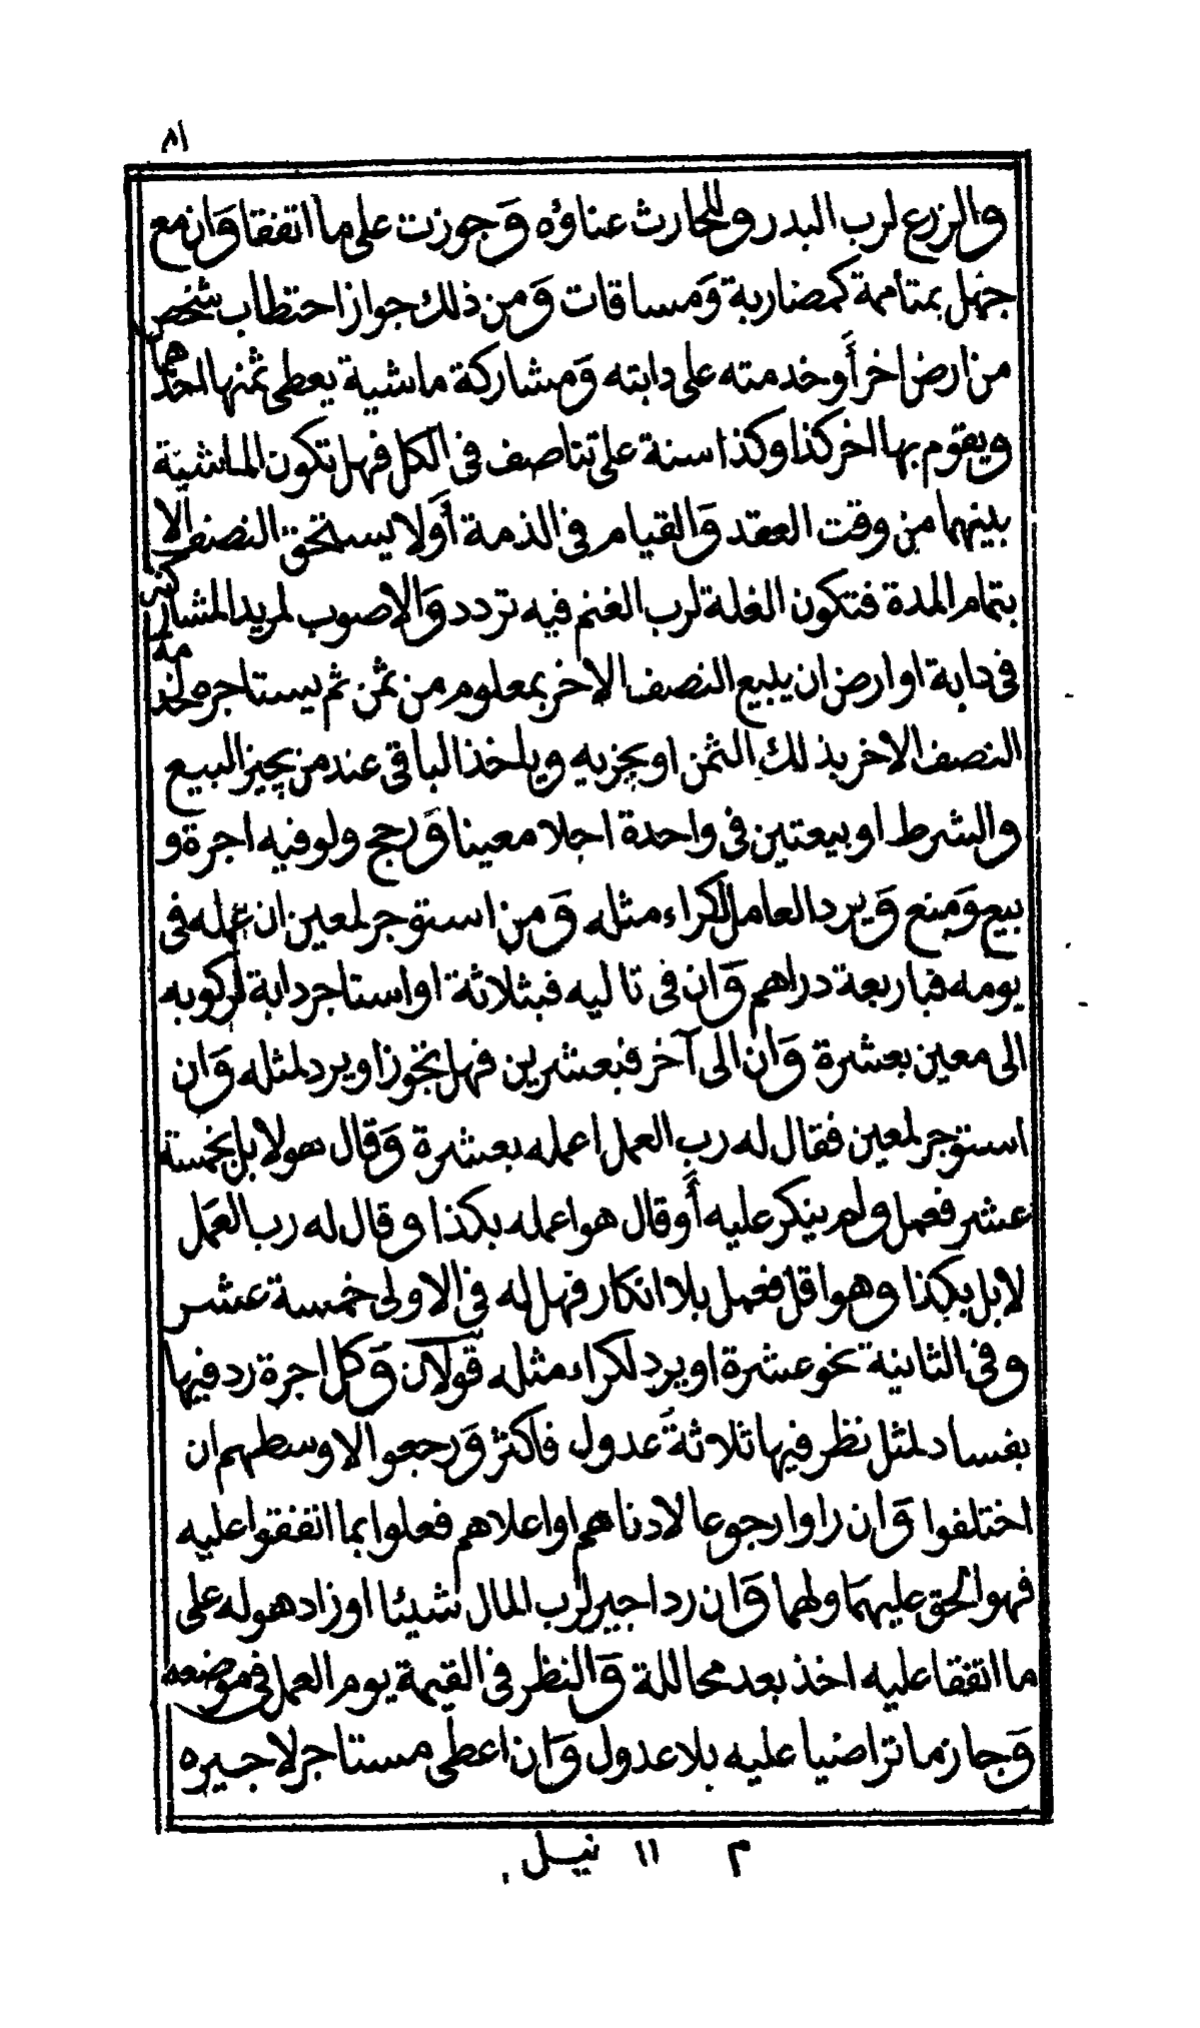 ٨١
والزرع لرب البدر وللحارث عناؤه وَجوزت على ما اتفقا وَان مع
جهل بمتاممة كمضاربة وَمساقات وَمن ذلك جواز احتطاب شخص
من ارض اخر أَو خدمته على دابته وَمشاركة ماشية يعطى ثمنها احدهما
ويقوم بها اخر كذا وكذا سنة على تناصف فى الكل فهل تكون الماشية
بينهما من وقت العقد وَالقيام فى الذمة أَولا يستحق النصف الا
بتمام المدة فتكون الغلة لرب الغنم فيه تردد وَالاصوب لمريد المشاركة
فى دابة او ارض ان يبيع النصف الاخر بمعلوم من ثمن ثم يستاجره لخدمة
النصف الاخر بذلك الثمن او بجزيه وياخذ الباقى عند من يجيز البيع
والشرط او بيعتين فى واحدة اجلا معينا وَرجح ولو فيه اجرة و
بيع وَمنع وَيرد العامل لكراء مثله وَمن استوجر لمعين ان عمله فى
يومه فباربعة دراهم وَان فى تاليه فبثلاثة او استاجر دابة لركوبه
الى معين بعشرة وَان الى آخر فبعشرين فهل تجوز او يرد لمثله وَان
استوجر لمعين فقال له رب العمل اعمله بعشرة وَقال هو لا بل بخمسة
عشر فعمل ولم ينكر عليه أَو قال هو اعمله بكذا وقال له رب العمَل
لا بل بكذا وهو اقل فعمل بلا انكار فهل له فى الاولى خمسة عشر
وفى الثانية نحو عشرة او يرد لكراء مثله قولان وَكل اجرة رد فيها
بفساد لمثل نظر فيها ثلاثةَ عدول فاكثر وَرجعوا لاوسطهم ان
اختلفوا وَان راوا رجوعا لادناهم او اعلاهم فعلوا بما اتفقوا عليه
فهو الحق عليهمَا ولهما وَان رد اجير لرب المال شيئا او زاد هو له على
ما اتفقا عليه اخذ بعد محاللة وَالنظر فى القيمة يوم العمل فى موضعه
وَجاز ما تراضيا عليه بلا عدول وَان اعطى مستاجر لاجيره
م ١١ نيل